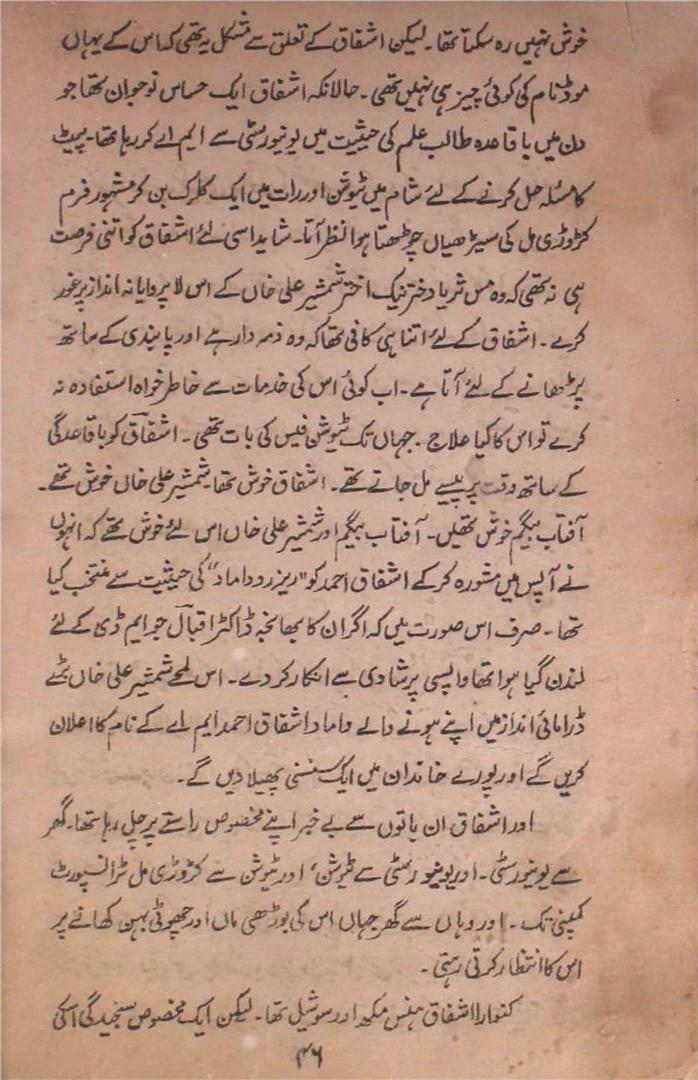 خوش نہیں رہ سکتا تھا۔ لیکن اشفاق کے تعلق سے مشکل یہ تھی کہ اس کے یہاں
موڈ نام کی کوئی چیز ہی نہیں تھی۔ حالانکہ اشفاق ایک حساس نوجوان تھا جو
دن میں باقاعدہ طالب علم کی حیثیت میں یونیورسٹی سے ایم اے کر رہا تھا۔ پیٹ
کا مسئلہ حل کرنے کے لئے شام میں ٹیوشن اور رات میں ایک کلرک بن کر مشہور فرم
کڑوڑی مل کی سیڑھیاں چڑھتا ہوا نظر آتا۔ شاید اسی لئے اشفاق کو اتنی فرصت
ہی نہ تھی کہ وہ مس ثریا دختر نیک اختر شمشیر علی خاں کے اس لاپروایانہ انداز پر غور
کرے۔ اشفاق کے لئے اتنا ہی کافی تھا کہ وہ ذمہ دار ہے اور پابندی کے ساتھ
پڑھانے کے لئے آتا ہے۔ اب کوئی اس کی خدمات سے خاطر خواہ استفادہ نہ
کرے تو اس کا کیا علاج۔ جہاں تک ٹیوشن فیس کی بات تھی۔ اشفاق کو باقاعدگی
کے ساتھ وقت پر پیسے مل جاتے تھے۔ اشفاق خوش تھا۔ شمشیر علی خاں خوش تھے۔
آفتاب بیگم خوش تھیں۔ آفتاب بیگم اور شمشیر علی خاں اس لئے خوش تھے کہ انہوں
نے آپس میں مشورہ کر کے اشفاق احمد کو "ریزرو داماد" کی حیثیت سے منتخب کیا
تھا۔ صرف اس صورت میں کہ اگر ان کا بھانجہ ڈاکٹر اقبال جو ایم ڈی کے لئے
لندن گیا ہوا تھا واپسی پر شادی سے انکار کر دے۔ اس لمحے شمشیر علی خاں بڑے
ڈرامائی انداز میں اپنے ہونے والے داماد اشفاق احمد ایم اے کے نام کا اعلان
کریں گے اور پورے خاندان میں ایک سنسنی پھیلا دیں گے۔
اور اشفاق ان باتوں سے بے خبر اپنے مخصوص راستے پر چل رہا تھا۔ گھر
سے یونیورسٹی۔ اور یونیورسٹی سے ٹیوشن، اور ٹیوشن سے کڑوڑی مل ٹرانسپورٹ
کمپنی تک۔ اور وہاں سے گھر جہاں اس کی بوڑھی ماں اور چھوٹی بہن کھانے پر
اس کا انتظار کرتی رہتی۔
کنوارا اشفاق ہنس مکھ اور سوشیل تھا۔ لیکن ایک مخصوص سنجیدگی اسکی
۴۶